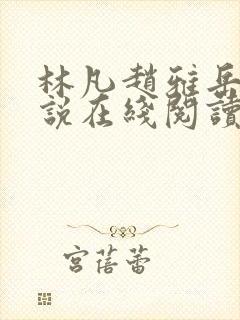 林凡趙雅岳
說在綫閱讀
宮蓓蕾